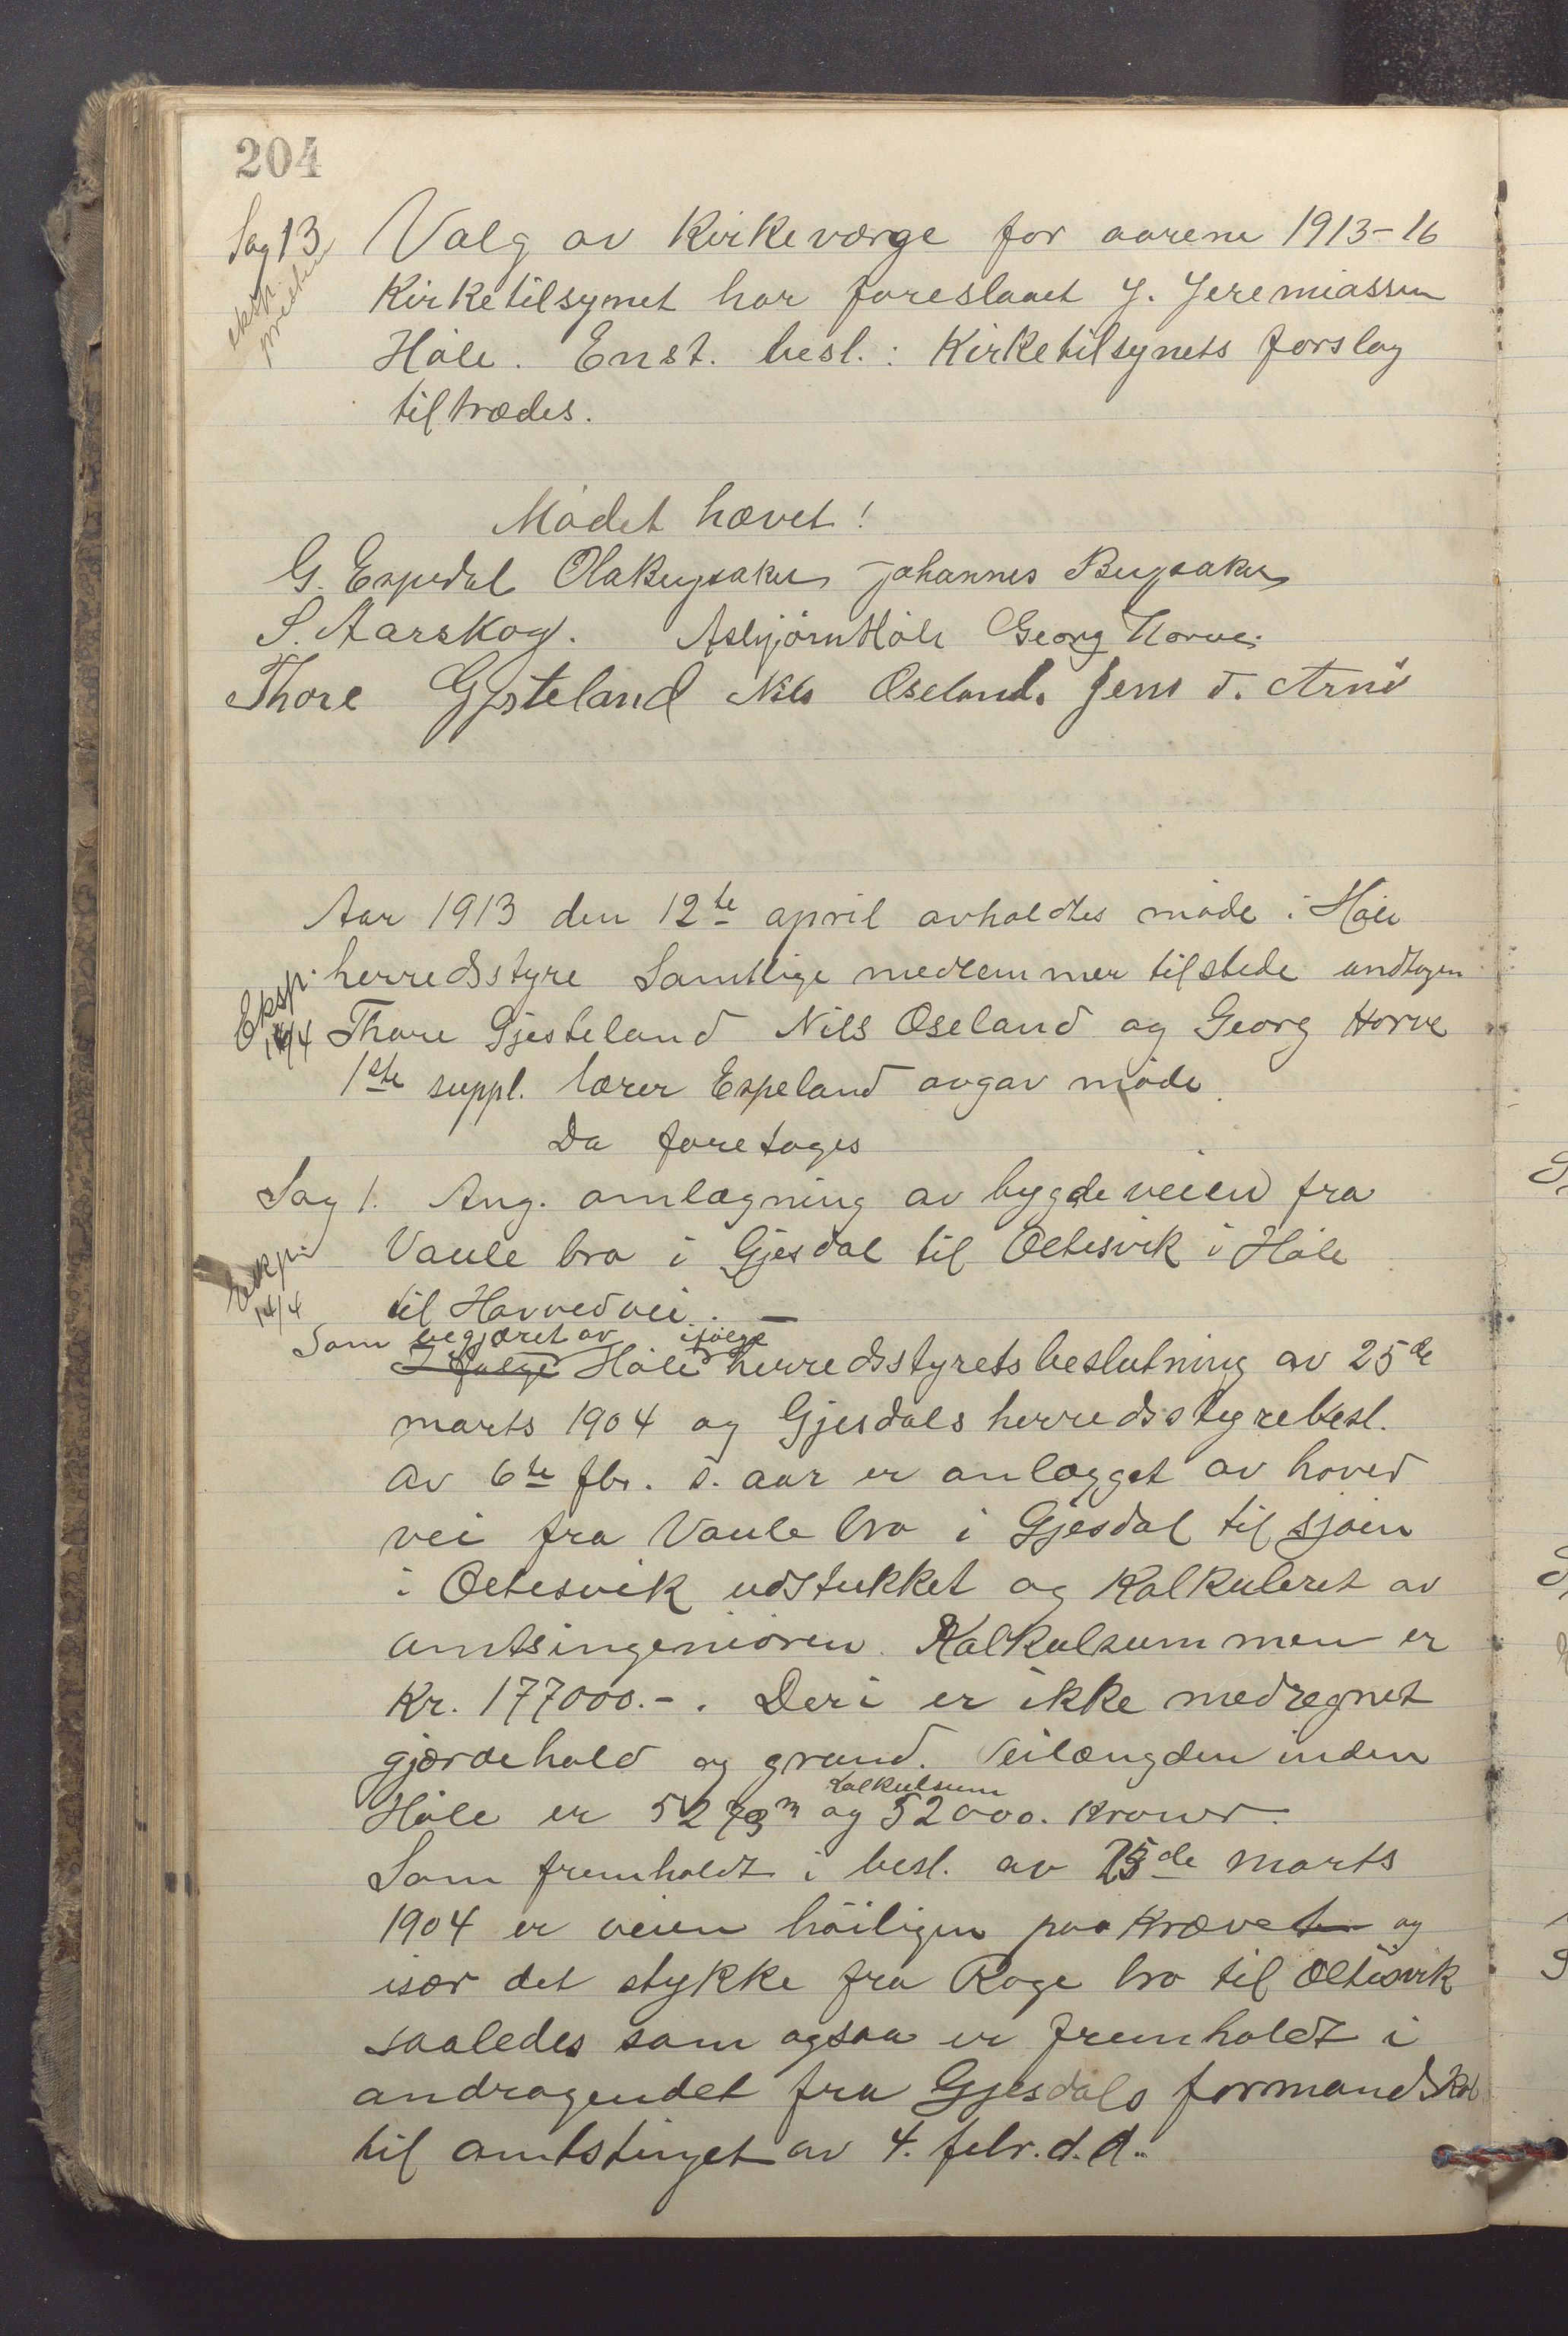 204
Sag 13 Valg av kirkeværge for aarene 1913-16
eksp. presten
Kirketilsynet har foreslaaet J. Jeremiassen
Høle. Enst. besl.: Kirketilsynets forslag
tiltrædes.
Mødet hævet!
G. Espedal Ola Bugsaker Johannes Bugsaker
S. Aarskog. Asbjørn Høle Georg Horve.
Thore Gjesteland Nils Øseland. Jens T. Arnø
Aar 1913 den 12te april avholdtes møde i Høle
Eksp. 14/4
herredsstyre Samtlige medlemmer tilstede undtagen
Thore Gjesteland Nils Øseland og Georg Horve
1ste suppl. lærer Espeland avgav møde.
Da foretoges
Sag 1. Ang. omlægning av bygdeveien fra
Eksp. 14/4
Vaule bro i Gjesdal til Oltesvik i Høle
til Hovedvei. —
Som begjæret av ifølge
I følge Høle herredsstyrets beslutning av 25de
marts 1904 og Gjesdals herredsstyrebesl.
av 6te fbr. s. aar er anlægget av hoved
vei fra Vaule bro i Gjesdal til sjøen
i Oltesvik udstukket og kalkuleret av
amtsingeniøren. Kalkulsummen er
Kr. 177000.-. Deri er ikke medregnet
gjærdehold og grund. Veilængden inden
kalkulsum
Høle er 5273 m og 52000. kroner.
Som fremholdt i besl. av 25de marts
1904 er veien høiligen paakrævet og
især det stykke fra Røge bro til Oltesvik
saaledes som ogsaa er fremholdt i
andragendet fra Gjesdals formandskab
til amtstinget av 4. febr. d.d..